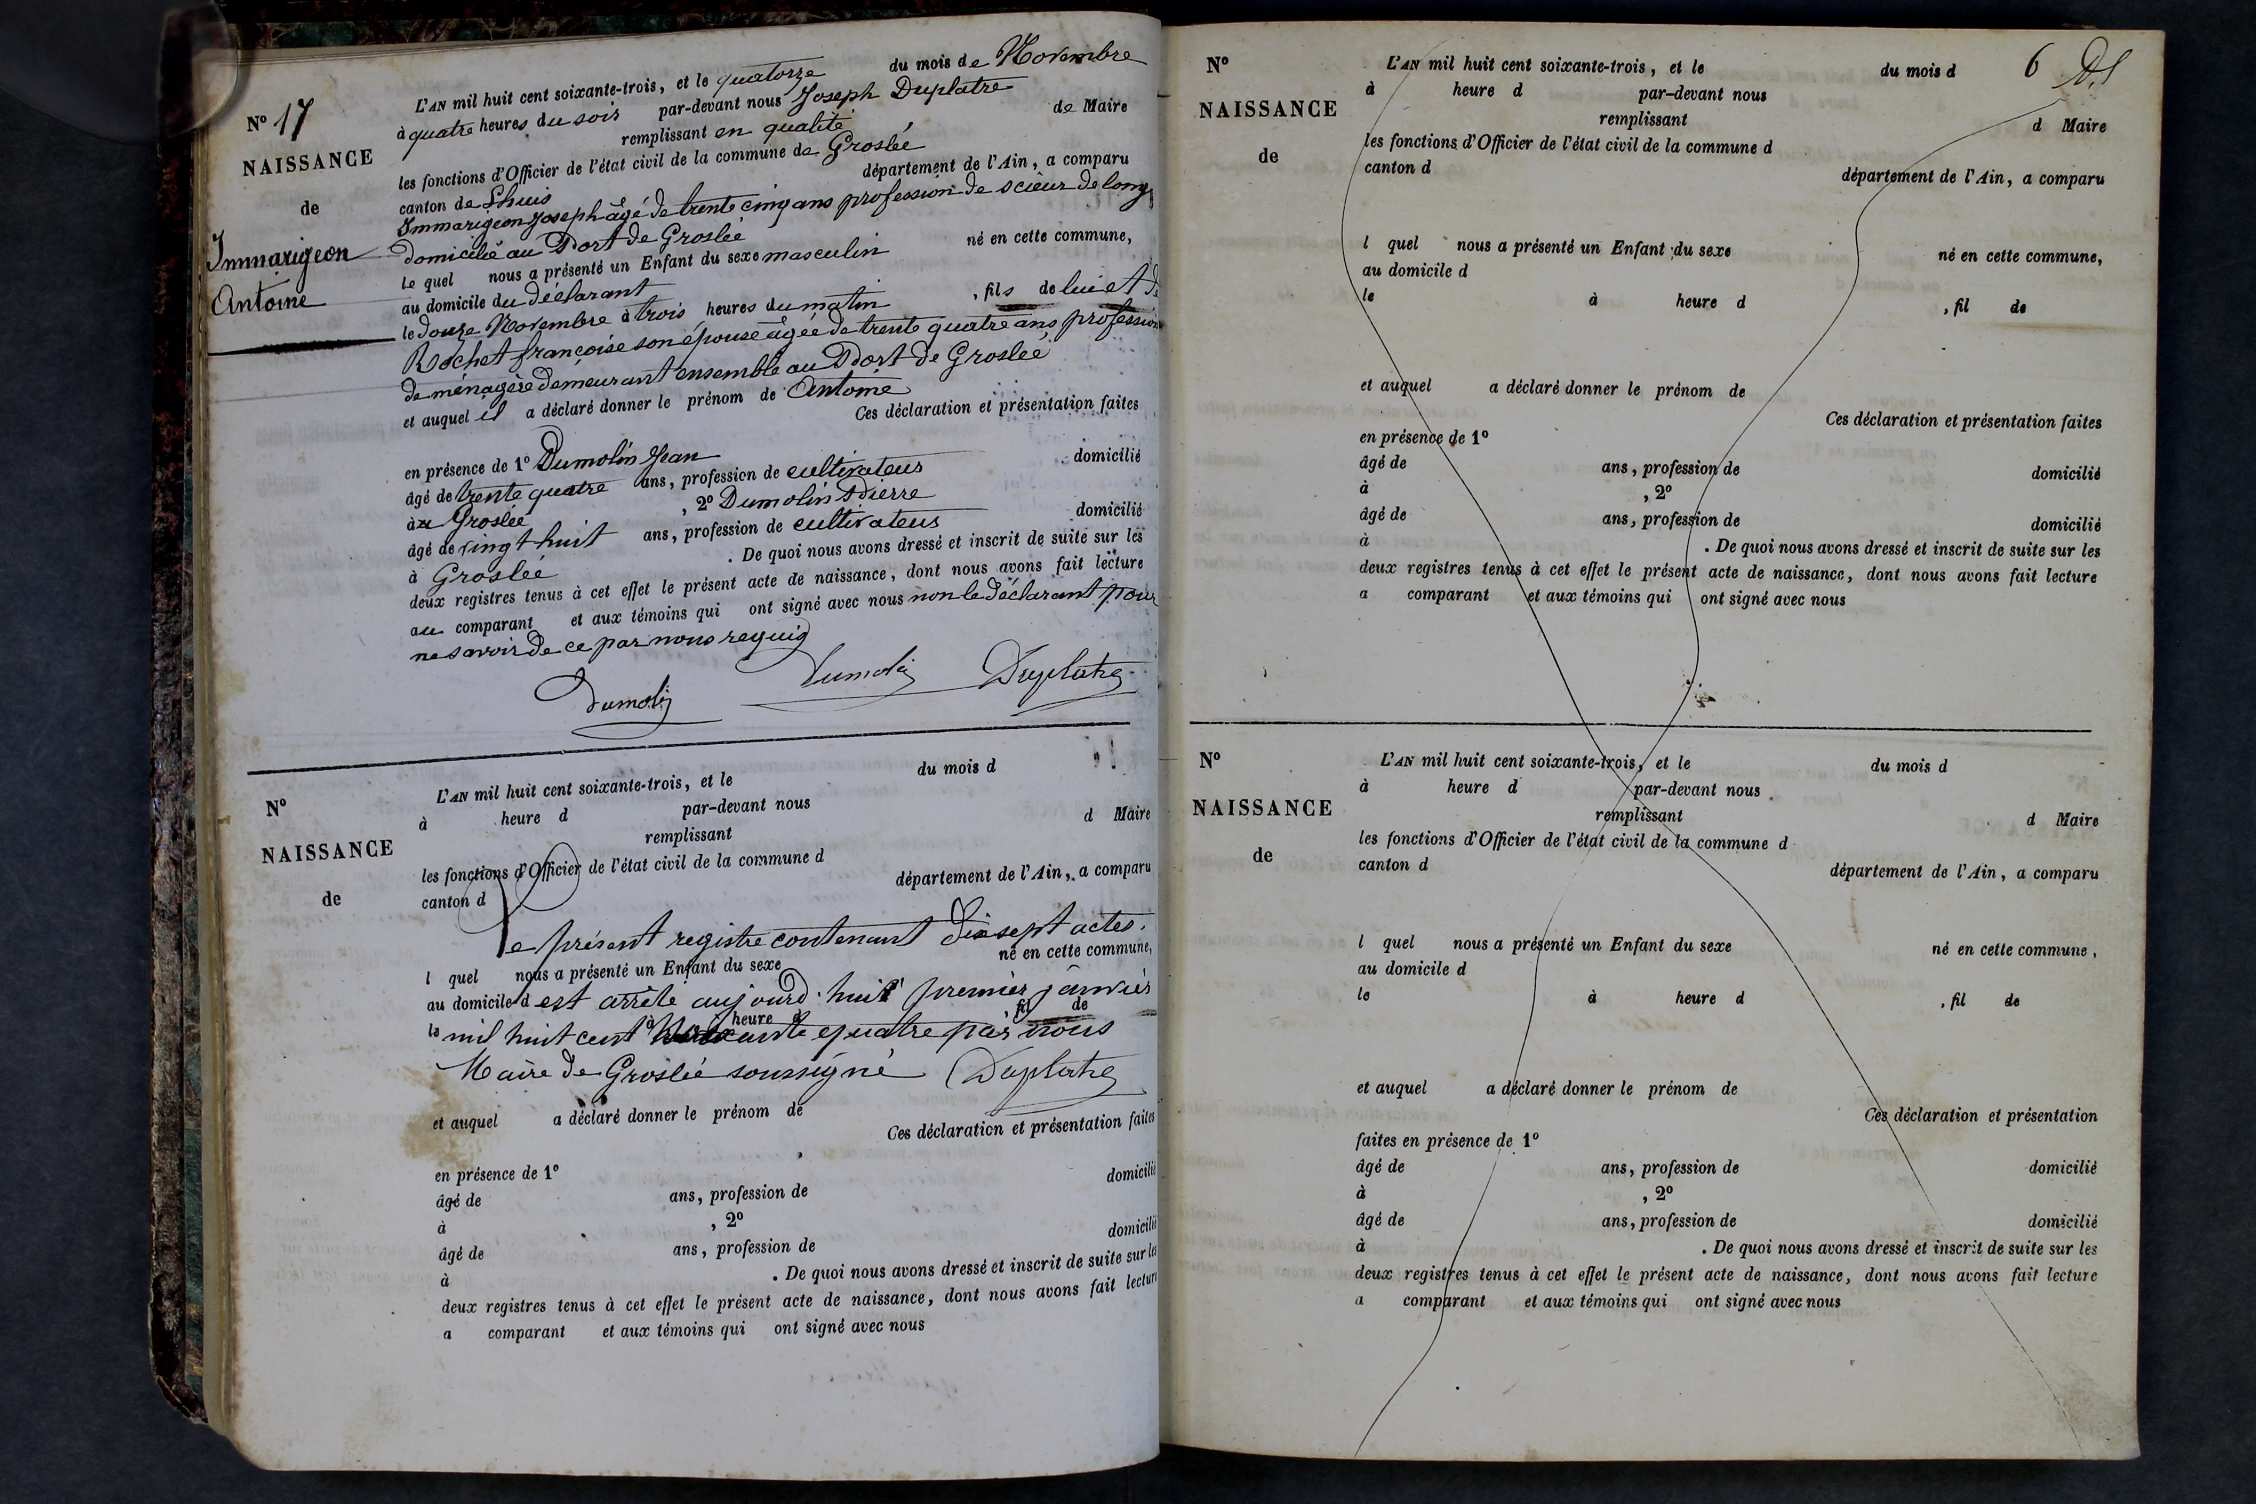 N° 17
NAISSANCE
de
Immarigeon
Antoine
L'AN mil huit cent soixante-trois, et le quatorze du mois de Novembre
à quatre heures du soir par-devant nous Joseph Duplatre
remplissant en qualité de Maire
les fonctions d'Officier de l'état civil de la commune de Groslée
canton de Lhuis département de l'Ain, a comparu
Immarigeon Joseph âgé de trente cinq ans profession de scieur de long
domicilié au Port de Groslée
le quel nous a présenté un Enfant du sexe masculin né en cette commune,
au domicile du déclarant
le douze Novembre à trois heures du matin, fils de lui et de
Rochet françoise son épouse âgée de trente quatre ans profession
de ménagère demeurant ensemble au Port de Groslée
et auquel il a déclaré donner le prénom de Antoine
Ces déclaration et présentation faites
en présence de 1° Dumolin Jean
âgé de trente quatre ans, profession de cultivateur domicilié
à Groslée, 2° Dumolin Pierre
âgé de vingt huit ans, profession de cultivateur domicilié
à Groslée . De quoi nous avons dressé et inscrit de suite sur les
deux registres tenus à cet effet le présent acte de naissance, dont nous avons fait lecture
au comparant et aux témoins qui ont signé avec nous non le déclarant pour
ne savoir de ce par nous requis
Dumolin Dumolin Duplatre
N°
NAISSANCE
de
L'AN mil huit cent soixante-trois, et le du mois d
à heure d par-devant nous
remplissant d Maire
les fonctions d'Officier de l'état civil de la commune d
canton d département de l'Ain, a comparu
Le présent registre contenant dix sept actes.
l quel nous a présenté un Enfant du sexe né en cette commune,
au domicile d
est arrêté aujourd'huit premier janvier
le à heure d fil de
mil huit cent soixante quatre par nous
Maire de Groslée soussigné Duplatre
et auquel a déclaré donner le prénom de
Ces déclaration et présentation faites
en présence de 1°
âgé de ans, profession de domicilié
à , 2°
âgé de ans, profession de domicilié
à . De quoi nous avons dressé et inscrit de suite sur les
deux registres tenus à cet effet le présent acte de naissance, dont nous avons fait lecture
a comparant et aux témoins qui ont signé avec nous
6
N°
NAISSANCE
de
L'AN mil huit cent soixante-trois, et le du mois d
à heure d par-devant nous
remplissant d Maire
les fonctions d'Officier de l'état civil de la commune d
canton d département de l'Ain, a comparu
l quel nous a présenté un Enfant du sexe né en cette commune,
au domicile d
le à heure d , fil de
et auquel a déclaré donner le prénom de
Ces déclaration et présentation faites
en présence de 1°
âgé de ans, profession de domicilié
à , 2°
âgé de ans, profession de domicilié
à . De quoi nous avons dressé et inscrit de suite sur les
deux registres tenus à cet effet le présent acte de naissance, dont nous avons fait lecture
a comparant et aux témoins qui ont signé avec nous
N°
NAISSANCE
de
L'AN mil huit cent soixante-trois, et le du mois d
à heure d par-devant nous
remplissant d Maire
les fonctions d'Officier de l'état civil de la commune d
canton d département de l'Ain, a comparu
l quel nous a présenté un Enfant du sexe né en cette commune,
au domicile d
le à heure d , fil de
et auquel a déclaré donner le prénom de
Ces déclaration et présentation
faites en présence de 1°
âgé de ans, profession de domicilié
à , 2°
âgé de ans, profession de domicilié
à . De quoi nous avons dressé et inscrit de suite sur les
deux registres tenus à cet effet le présent acte de naissance, dont nous avons fait lecture
a comparant et aux témoins qui ont signé avec nous